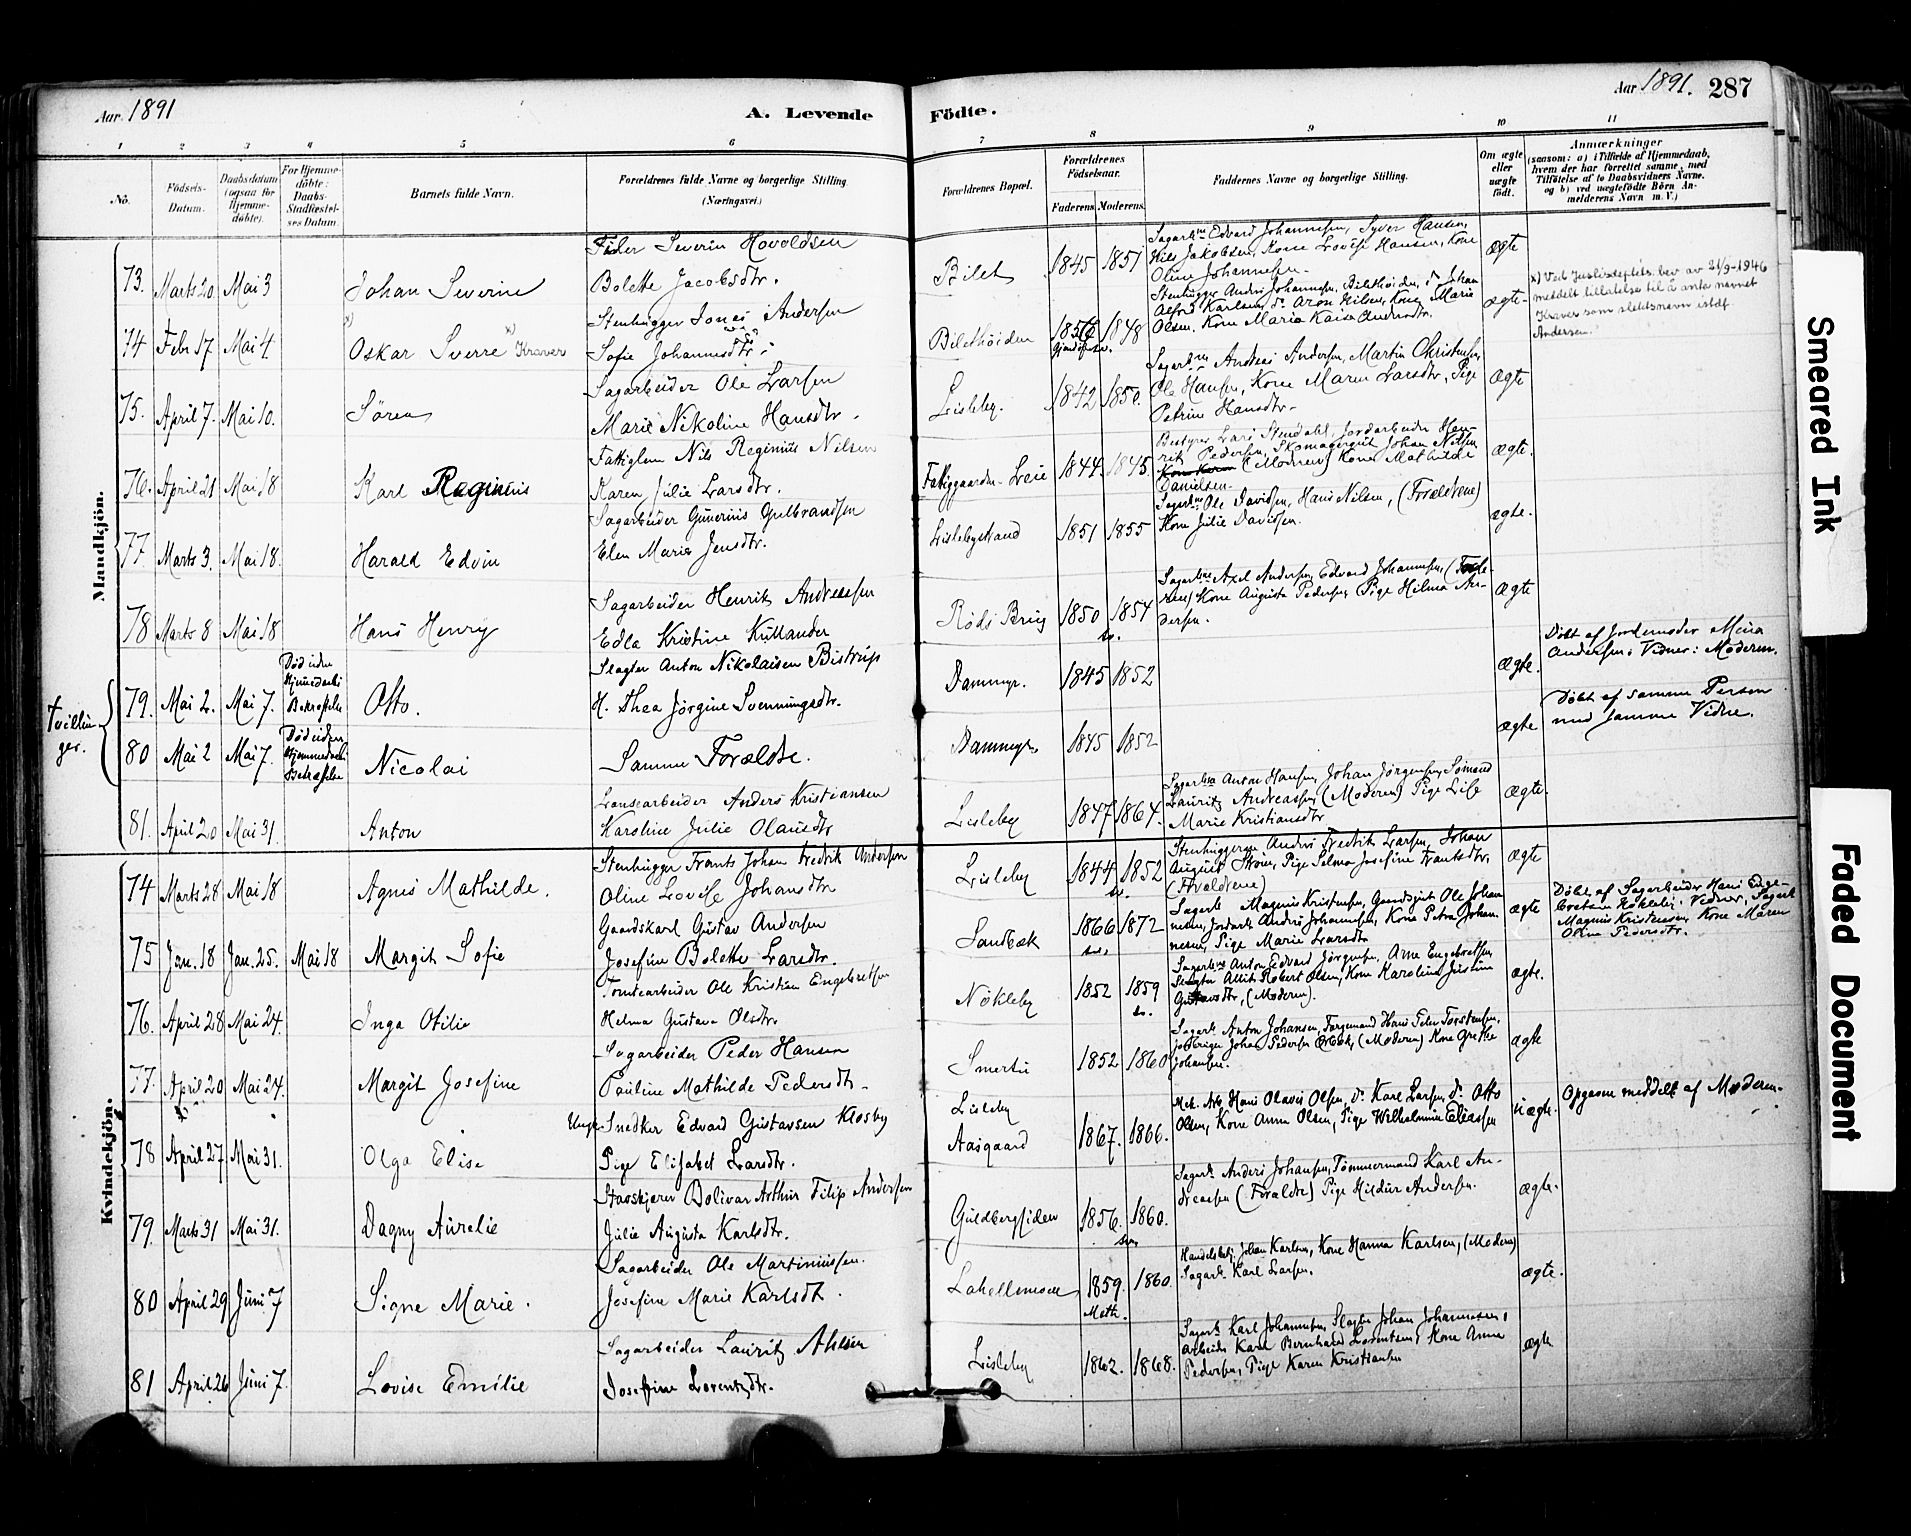 Aar 1891
A. Levende
Födte.
Aar 1891. 287
1 2 3 4 5 6 7 8 9 10 11
No.
Födsels-Datum.
Daabsdatum (ogsaa for Hjemme-döbte).
For Hjemme-döbte: Daabs-Stadfæstel-ses Datum.
Barnets fulde Navn.
Forældrenes fulde Navne og borgerlige Stilling
(Næringsvei.)
Forældrenes Bopæl.
Forældrenes Födselsaar.
Faderens. Moderens.
Faddernes Navne og borgerlige Stilling.
Om ægte eller uægte födt.
Anmærkninger
(saasom: a) i Tilfælde af Hjemmedaab,
hvem der har forrettet samme, med
Tilföielse af to Daabsvidners Navne,
og b) ved uægtefödte Börn An-
melderens Navn m. V.)
Mandkjön.
73. Marts 20 Mai 3 Johan Severin
Severin Havoldsen
Bolette Jacobsdtr.
Bilet 1845 1851
Sagarb. Edvard Johannesen, Syver Hansen,
Nils Jakobsen, Kone Lovise Hansen, Kone
Oline Johannesen
ægte
74 Febr 17 Mai 4 Oskar Sverre Kraver
Stenhugger Jonas Andersen
Sofie Johannesdtr.
Bilethöiden 1856 1848
Stenhugger Anders Johannesen, Bilethöiden, do Johan
Alfred Karlsen, do Aron Nilsen, Kone Marie
Olsen, Kone Maria Kaisa Andersdtr.
ægte
x) Ved Justisdeptets bev. av 21/9-1946
meddelt tillatelse til å anta navnet
Kraver som slektsnavn istdf.
Andersen.
75. April 7. Mai 10. Sören
Sagarbeider Ole Larsen
Marie Nikoline Hansdtr.
Lisleby. 1842 1850.
Sagarb. Andreas Andersen, Martin Christensen,
Ole Hansen, Kone Maren Larsdtr, Pige
Petrine Hansdtr.
ægte
76. April 21 Mai 18 Karl Reginius
Fattiglem Nils Reginius Nilsen
Karen Julie Larsdtr.
Fattiggaarden Leie 1844. 1845.
Bestyrer Lars Stendahl, Jordarbeider Hen-
rik Pedersen, Skomagergut Johan Nilsen
(Moderen) Kone Mathilde
Danielsen.
ægte.
77. Marts 3. Mai 18. Harald Edvin
Sagarbeider Gunerius Gulbrandsen
Elen Marie Jensdtr.
Lislebystrand 1851 1855
Sagarb. Ole Davidsen, Hans Nilsen, (Forældrene)
Kone Julie Davidsen.
ægte.
78 Marts 8 Mai 18 Hans Henry
Sagarbeider Henrik Andreasen
Edla Kristine Kullander
Röds Brug 1850 1854
Sagarb. Axel Andersen, Edvard Johannesen, (Foræld-
rene) Kone Augusta Pedersen, Pige Hilma An-
dersen.
ægte
Tvillin-
ger.
79. Mai 2. Mai 7. Otto.
Död uden
Hjemmedaabs
Bekræftelse
Slagter Anton Nikolaisen Bistrup
H. Thea Jörgine Svenningsdtr.
Dammyr. 1845 1852
ægte.
Döbt af Jordemoder Mina
Andersen. Vidner: Moderen.
80 Mai 2 Mai 7. Nicolai
Död uden
Hjemmedaabs
Bekræftelse
Samme Forældre.
Dammyr. 1845 1852
ægte
Döbt af samme Person
med samme Vidne.
81. April 20 Mai 31. Anton
Landsearbeider Anders Kristiansen
Karoline Julie Olausdtr
Lisleby 1847 1864.
Sagarb. Anton Hansen, Johan Jörgensen, Sömand
Lauritz Andreasen, (Moderen) Pige Lise
Marie Kristiansdtr
ægte.
Kvindekjön.
74 Marts 28 Mai 18 Agnes Mathilde.
Stenhugger Frants Johan Fredrik Andersen
Oline Lovise Johansdtr
Lisleby 1844 1852
Stenhuggerne Anders Fredrik Larsen, Johan
August Ström, Pige Selma Josefine Frantsdtr.
(Forældrene)
ægte
75 Jan. 18 Jan. 25. Mai 18 Margit Sofie
Gaardskarl Gustav Andersen
Josefine Bolette Larsdtr.
Sandbæk 1866 1872
Sagarb. Magnus Kristensen, Gaardsgut Ole Johan-
nesen, Jordarb. Anders Johannesen, Kone Petra Johan-
nesen, Pige Marie Larsdtr
ægte
Döbt af Sagarbeider Hans Enge-
bretsen Nökleby. Vidner, Sagarb.
Magnus Kristensen, Kone Maren
Oline Pedersdtr.
76. April 28 Mai 24. Inga Otilie
Tomtearbeider Ole Kristian Engebretsen
Helma Gustava Olsdtr.
Nökleby 1852 1859
Sagarb. Anton Edvard Jörgensen, Arne Engebretsen,
Robert Olsen, Kone Karoline Justine
Gustavsdtr, (Moderen).
ægte.
77. April 20 Mai 24. Margit Josefine
Sagarbeider Peder Hansen
Pauline Mathilde Pedersdtr.
Smertu 1852 1860
Sagarb. Anton Johansen, Færgemand Hans Peder Torstensen,
Johan Pedersen, (Moderen) Kone Grethe
Johansen.
ægte
78 April 27 Mai 31. Olga Elise
Ungk. Snedker Edvard Gustavsen Klosby
Pige Elisabet Larsdtr.
Lisleby
Aasgaard 1867. 1866.
Mek. Arb. Hans Olaves Olsen, do Karl Larsen, do Otto
Olsen, Kone Anna Olsen, Pige Wilhelmine Eliassen
uægte.
Opgaven meddelt af Moderen.
79. Marts 31 Mai 31. Dagny Aurelie
Stavskjærer Bolivar Arthur Filip Andersen
Julie Augusta Karlsdtr.
Guldbergsiden 1856. 1860.
Sagarb. Anders Johansen, Tömmermand Karl An-
dreasen (Forældre) Pige Hildur Andersen.
ægte.
80 April 29 Juni 7 Signe Marie.
Sagarbeider Ole Martiniussen.
Josefine Marie Karlsdt.
Lahellemoen 1859. 1860.
Handelsbetj. Johan Karlsen, Kone Hanna Karlsen, (Moderen)
Sagarb. Karl Larsen.
ægte.
81 April 26 Juni 7. Lovise Emilie
Sagarbeider Lauritz Ahlsen
Josefine Lorentzdtr.
Lisleby 1862. 1868.
Sagarb. Karl Johannesen, Slagter Johan Johannesen,
Arbeider Karl Bernhard Lorentsen, Kone Anne
Pedersen, Pige Karen Kristiansen
ægte
Smeared Ink
Faded Document